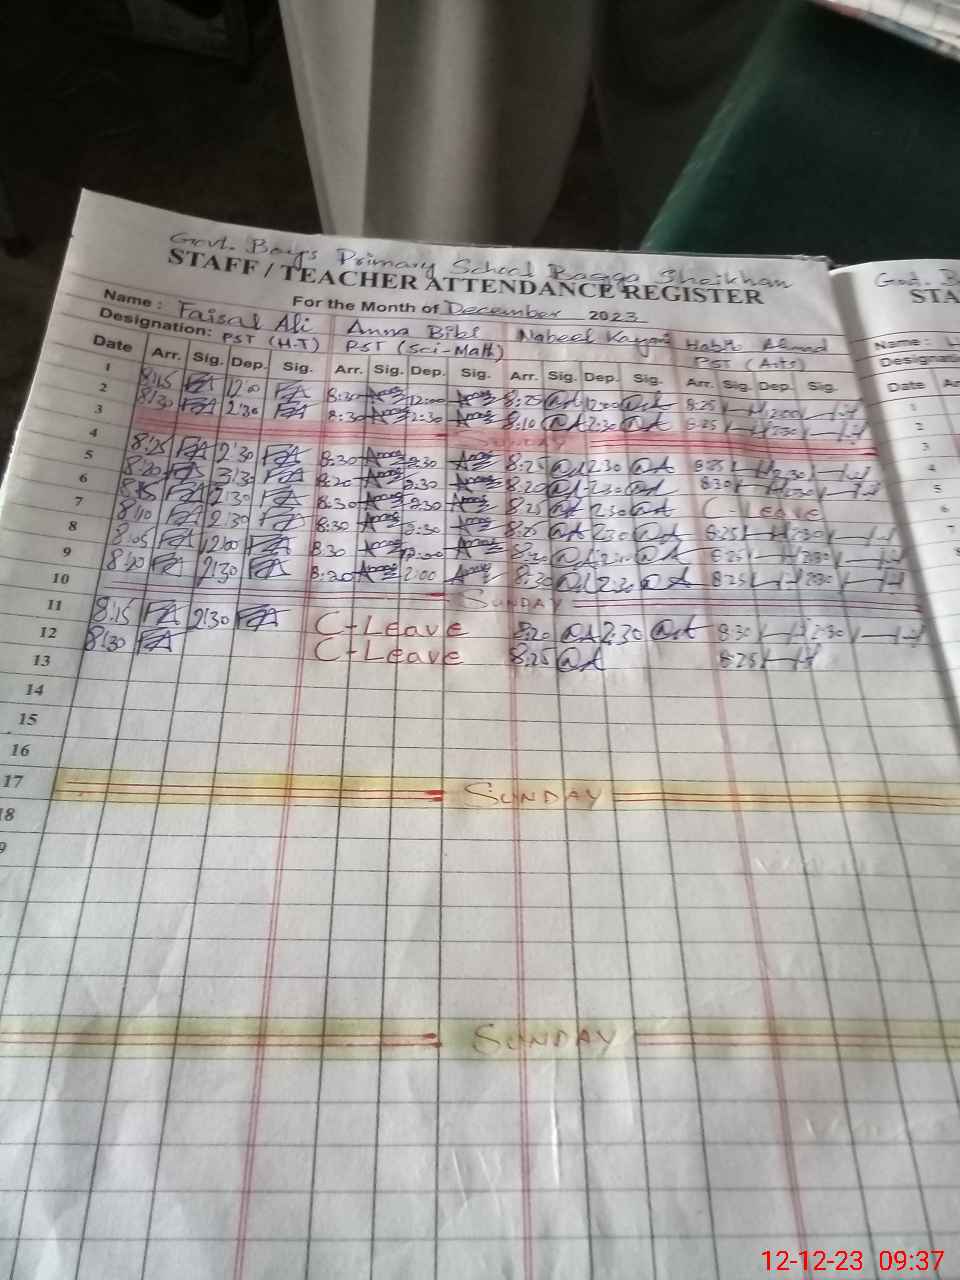 Govt. Boys Primary School Bagga Sheikhan
STAFF / TEACHER ATTENDANCE REGISTER
For the Month of December 2023
Name : Faisal Ali Amna Bibi Nabeel Kayani Habib Ahmad
Designation: PST (H.T) PST (Sci-Math) PST (Arts)
Date Arr. Sig. Dep. Sig. Arr. Sig. Dep. Sig. Arr. Sig. Dep. Sig. Arr. Sig. Dep. Sig.
1 8:15 FA 12:00 FA 8:30 12:00 8:25 @A 12:00 @A 8:25 12:00
2 8:30 FA 2:30 FA 8:30 2:30 8:10 @A 2:30 @A 8:25 2:30
3 SUNDAY
4 8:25 FA 2:30 FA 8:30 2:30 8:25 @A 2:30 @A 8:25 2:30
5 8:20 FA 3:30 FA 8:20 2:30 8:20 @A 2:30 @A 8:30 2:30
6 8:15 FA 2:30 FA 8:30 2:30 8:25 @A 2:30 @A C-LEAVE
7 8:10 FA 2:30 FA 8:30 2:30 8:25 @A 2:30 @A 8:25 2:30
8 8:05 FA 12:00 FA 8:30 12:00 8:20 @A @A 8:25 2:30
9 8:20 FA 2:30 FA 8:20 2:00 8:20 @A 2:30 @A 8:25 2:30
10 SUNDAY
11 8:15 FA 2:30 FA C-LEAVE 8:20 @A 2:30 @A 8:30 2:30
12 8:30 FA C-LEAVE 8:25 @A 8:25
13
14
15
16
17 SUNDAY
18
9
SUNDAY
Govt. B
STA
Name :
Designati
Date
1
2
3
4
5
6
7
12-12-23 09:37